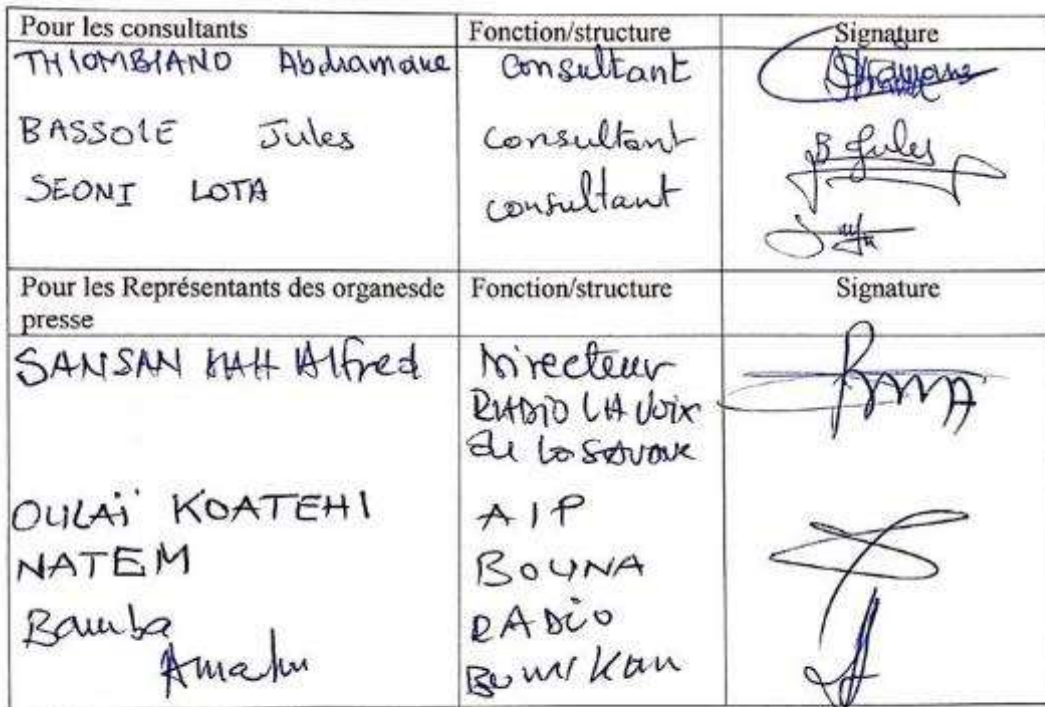 Pour les consultants Fonction/structure Signature
THIOMBIANO Abdramane consultant
BASSOLE Jules consultant B Jules
SEONI LOTA consultant
Pour les Représentants des organesde Fonction/structure Signature
presse
SANSAN KAH Alfred Directeur
RADIO LA Voix
de la savane
OULAÏ KOATEHI AIP
NATEM BOUNA
Bamba RADIO